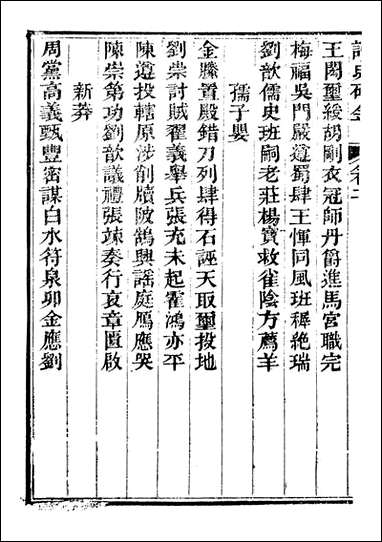 王閎璽綬胡剛衣冠師丹爵進馬宮職完
梅福吳門嚴遵蜀肆王惲同風班穉絶瑞
劉歆儒史班嗣老莊楊寶救雀陰方薦羊
孺子嬰
金縢置殿錯刀列肆得石誣天取璽投地
劉崇討賊翟義舉兵張充未起霍鴻亦平
陳遵投轄原涉削牘陂鵠興謡庭鴈應哭
陳崇第功劉歆議禮張竦奏行哀章匱啟
新莽
周黨高義甄豐密謀白水符泉卯金應劉